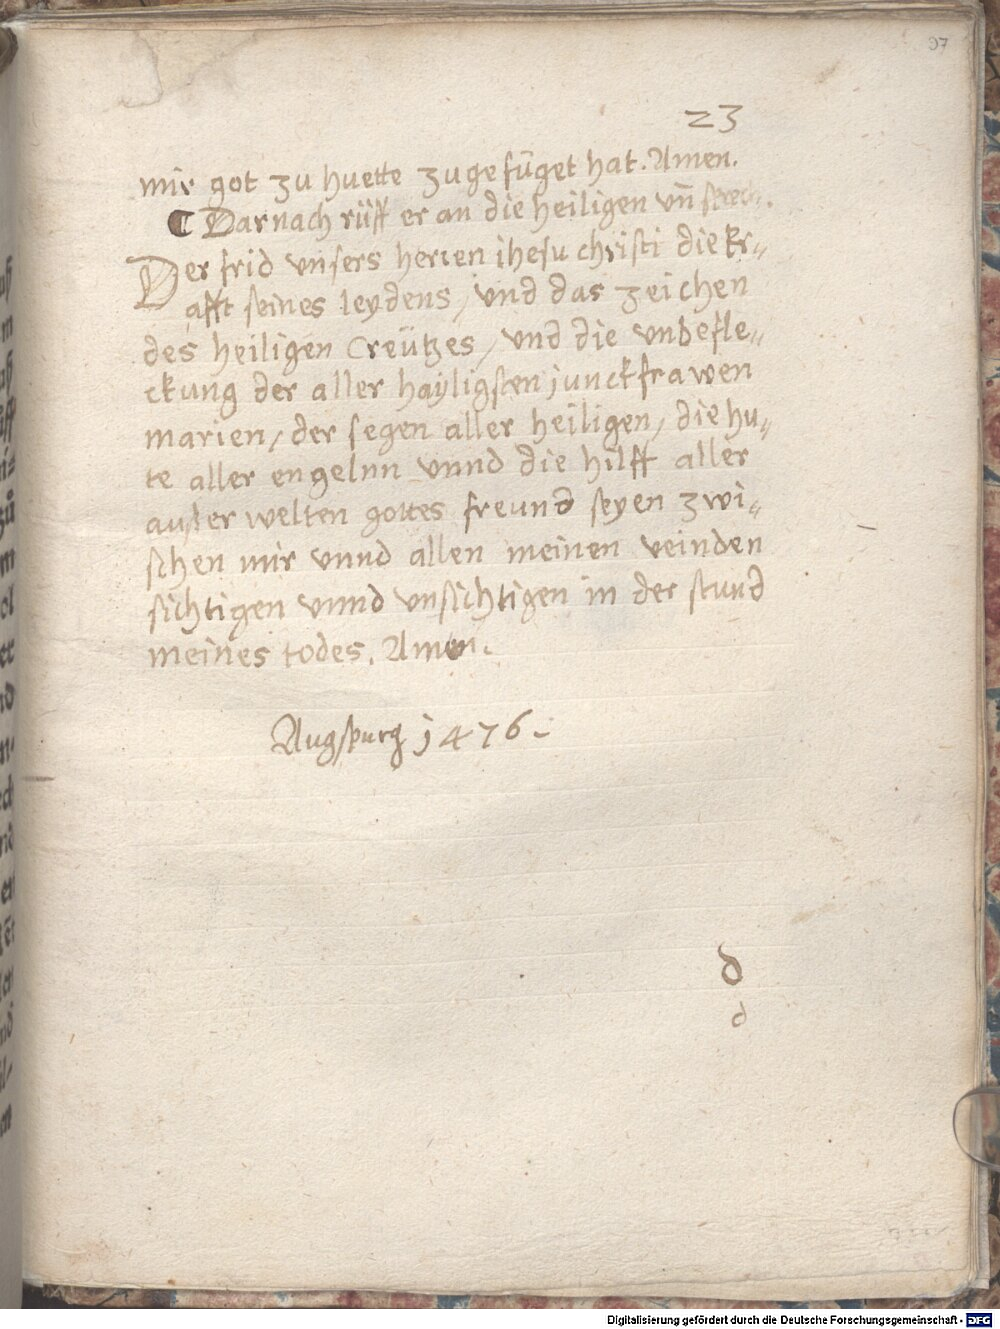 97
23
mir got zu huette zugefüget hat. Amen.
¶ Darnach rüff er an die heiligen vn̄ sprech.
Der frid vnsers herren ihesu christi die kr„
afft seines leydens / vnd das zeichen
des heiligen Creützes / vnd die vnbefle„
ckung der aller hayligsten junckfrawen
marien / der segen aller heiligen / die hu„
te aller engelnn vnnd die hilff aller
außerwelten gottes freund seyen zwi„
schen mir vnnd allen meinen veinden
sichtigen vnnd vnsichtigen in der stund
meines todes. Amen.
Augspurg 1476.
d
d
Digitalisierung gefördert durch die Deutsche Forschungsgemeinschaft - DFG